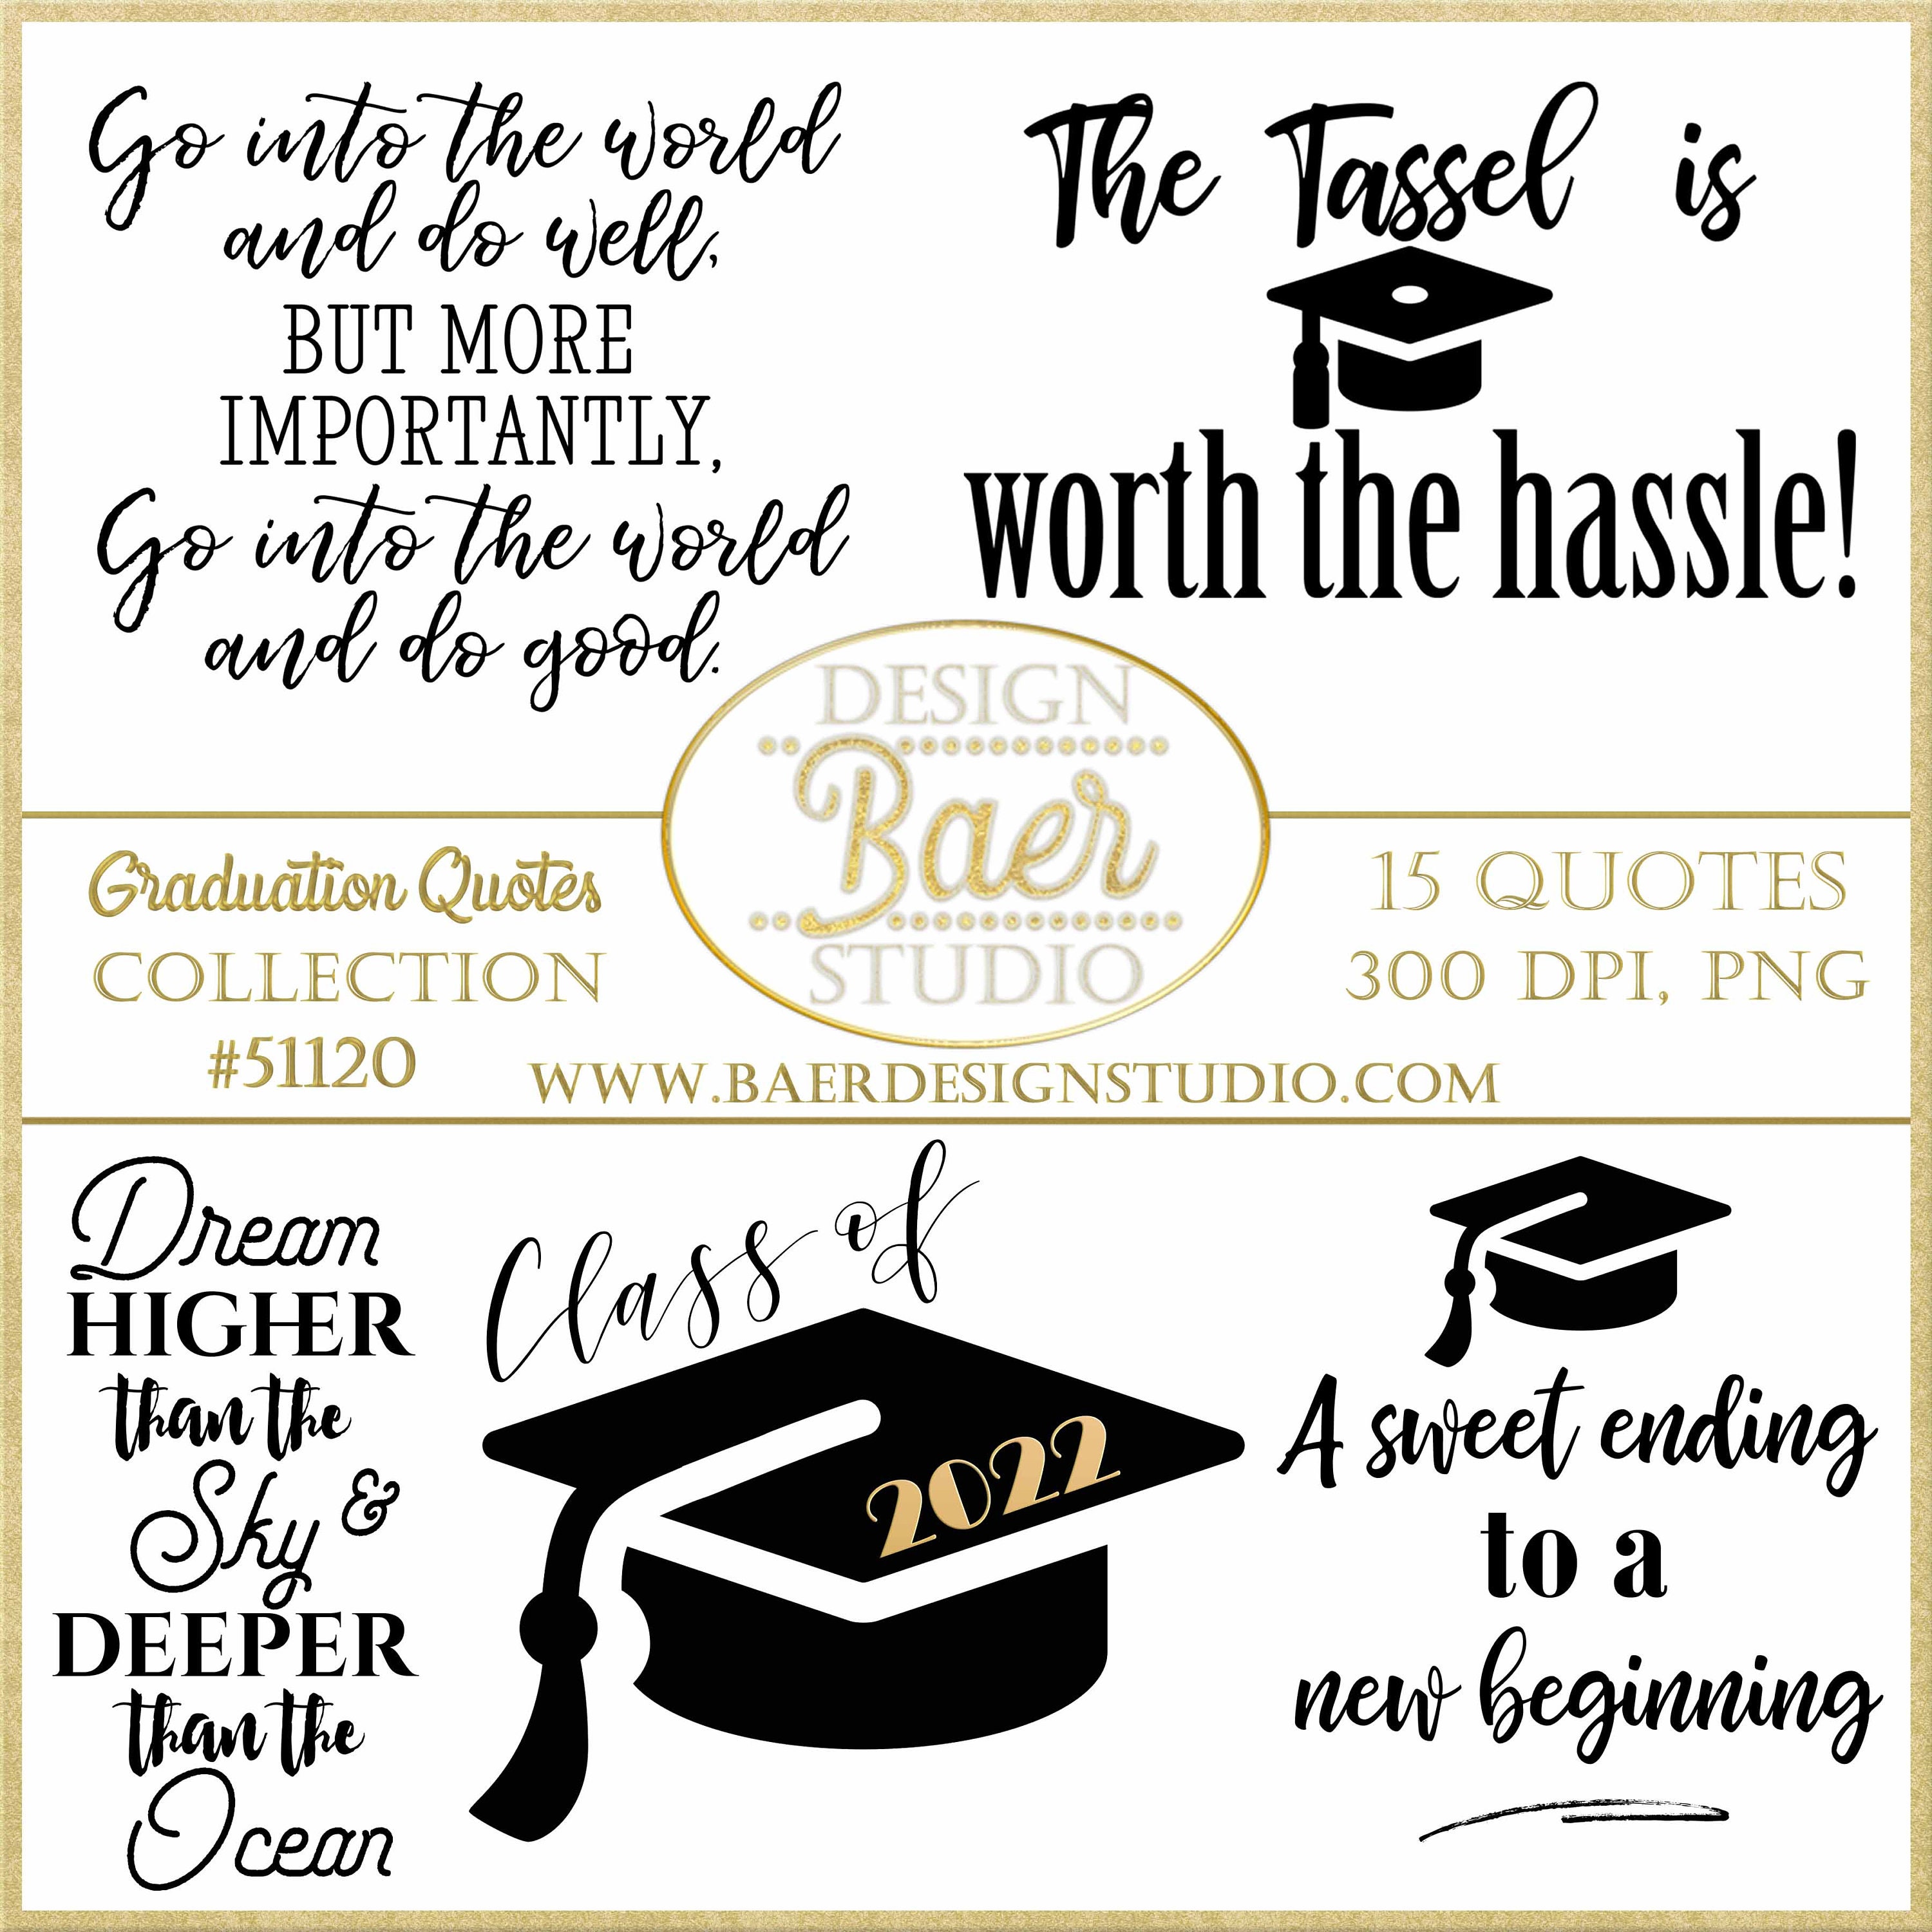 Go into the world
and do well,
BUT MORE
IMPORTANTLY,
Go into the world
and do good.
The Tassel is
worth the hassle!
Graduation Quotes
COLLECTION
#51120
DESIGN
Baer
STUDIO
15 QUOTES
300 DPI, PNG
WWW.BAERDESIGNSTUDIO.COM
Dream
HIGHER
than the
Sky &
DEEPER
than the
Ocean
Class of
2022
A sweet ending
to a
new beginning